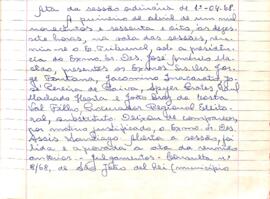 Ata da sessão ordinária de 1º-04-68.
A primeiro de abril de um mil
novecentos e sessenta e oito, às dezes-
sete horas, na sala das sessões, reu-
niu-se o E. Tribunal, sob a presidên-
cia do Exmo. Sr. Des. José Américo Ma-
cedo, presentes os Exmos. Srs. Drs. Jor-
ge Fontana, Jacomino Inacarato, Jo-
sé Pereira de Paiva,
Machado Horta e João Braz da Costa
Val Filho, Procurador Regional Eleito-
ral, substituto. Deixou de comparecer,
por motivo justificado, o Exmo. Sr. Des.
Assis Santiago. Aberta a sessão, foi
lida e aprovada a ata da reunião
anterior. - Julgamentos: - Consulta nº
8/68, de São João del Rei (município